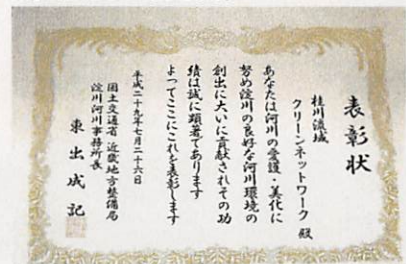 表彰状
桂川流域
クリーンネットワーク 殿
あなたは河川の愛護・美化に
努め淀川の良好な河川環境の
創出に大いに貢献されその功
績は誠に顕著であります
よってここにこれを表彰します
平成二十九年七月二十六日
国土交通省 近畿地方整備局
淀川河川事務所長
東出成記